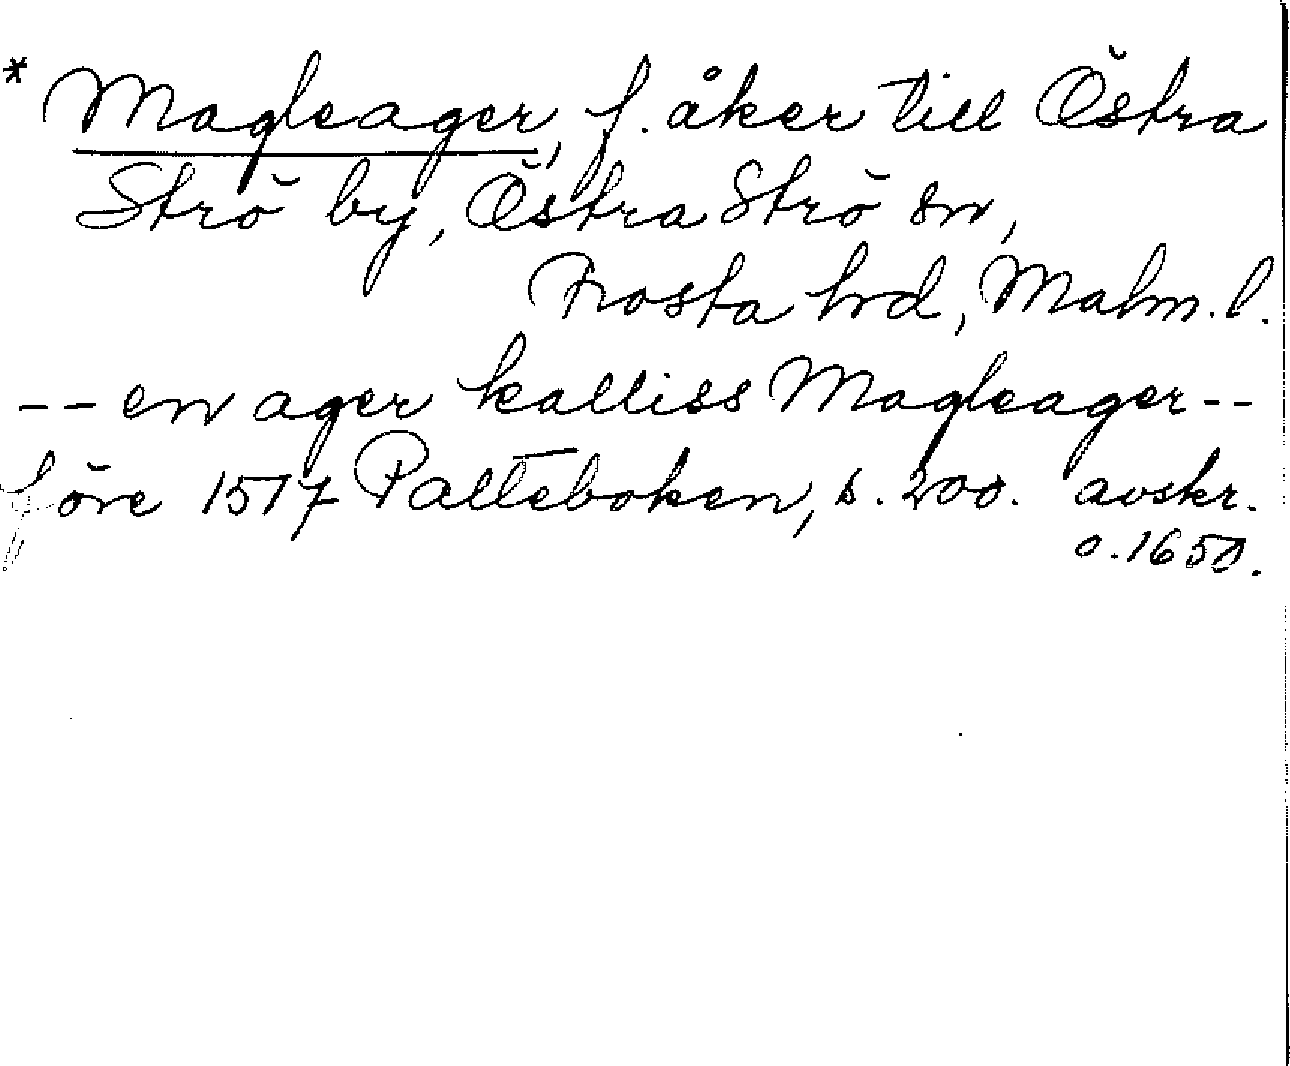 * Magleager, f. åker till Östra
Strö by, Östra Strö sn,
Frosta hrd, Malm. l.
-- en ager kalliss Magleager --
före 1517 Palteboken, s. 200. avskr.
o. 1650.